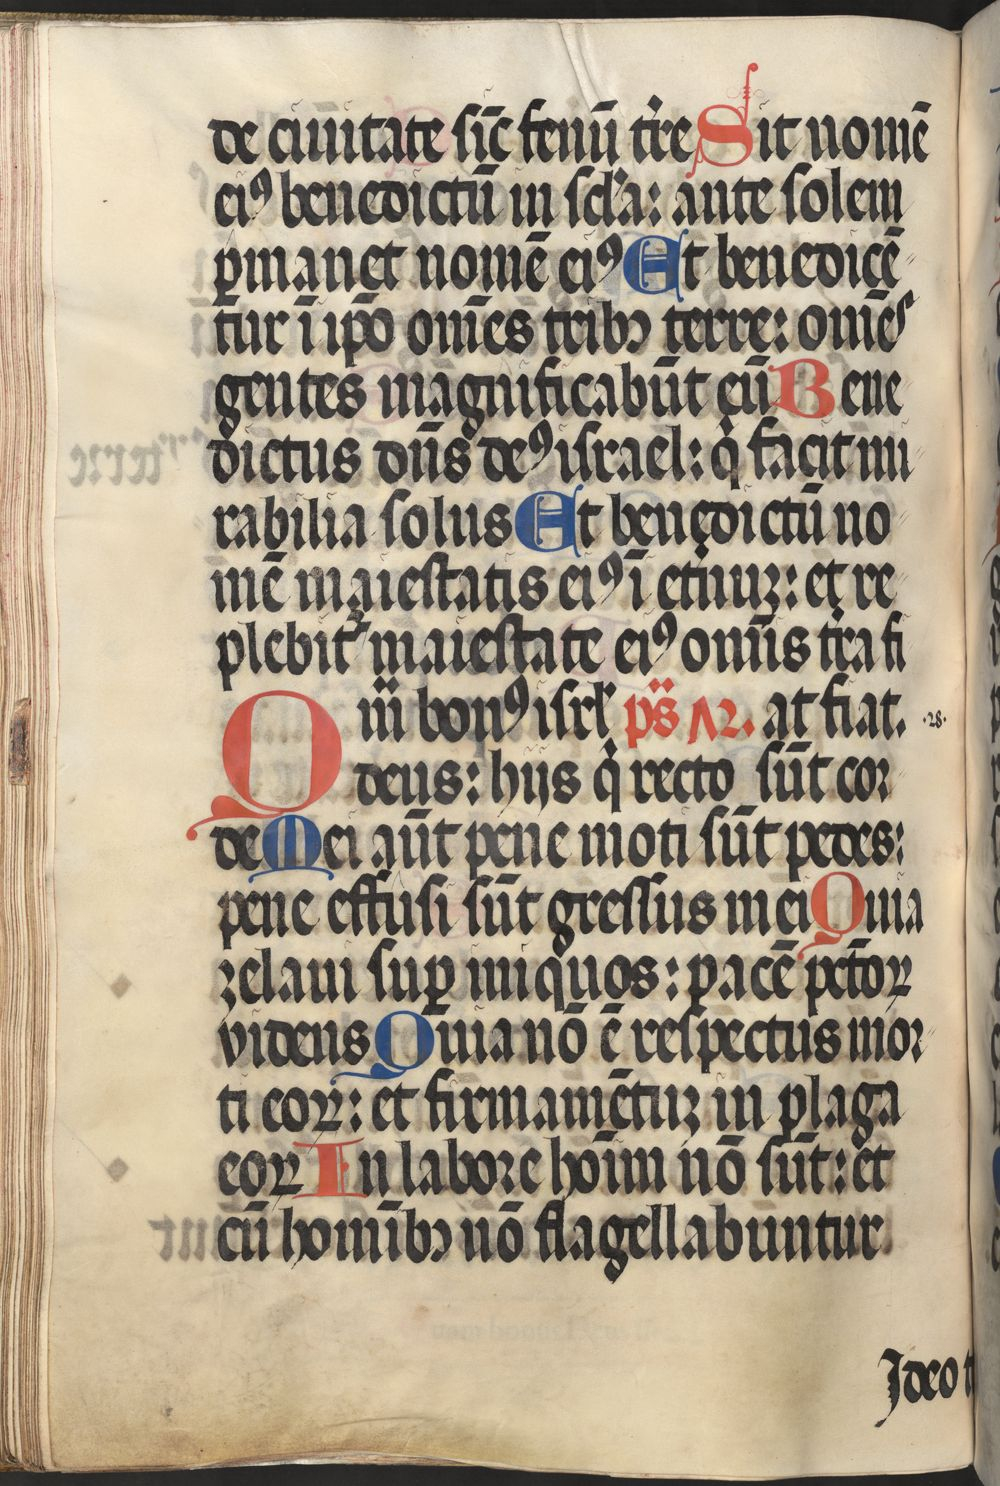 de ciuitate sic̄ fenū tr̄re Sit nomē
eiꝰ benedictū in scl̓a: ante solem
ꝑmanet nomē eiꝰ Et benedicē
tur ī ip̄o om̄es tribꝫ terre: om̄es
gentes magnificabūt eū Bene
dictus dn̄s deꝰ israel: qͥ facit mi
rabilia solus Et benedictū no
mē maiestatis eiꝰ ī et̓nuꝫ: et re
plebit᷑ maiestate eiꝰ omīs tr̓a fi
at fiat.
Qͣm bonꝰ isrl̓ ps̄ 72. ·28·
deus: hijs qͥ recto sūt cor
de Mei aūt pene moti sūt pedes:
pene effusi sūt gressus mei Quia
zelaui suꝑ iniquos: pacē pctōꝝ
videns Quia nō ē respectus mor
ti eoꝝ: et firmamētuꝫ in plaga
eoꝝ In labore hoīm nō sūt: et
cū homībꝫ nō flagellabuntur
Ideo